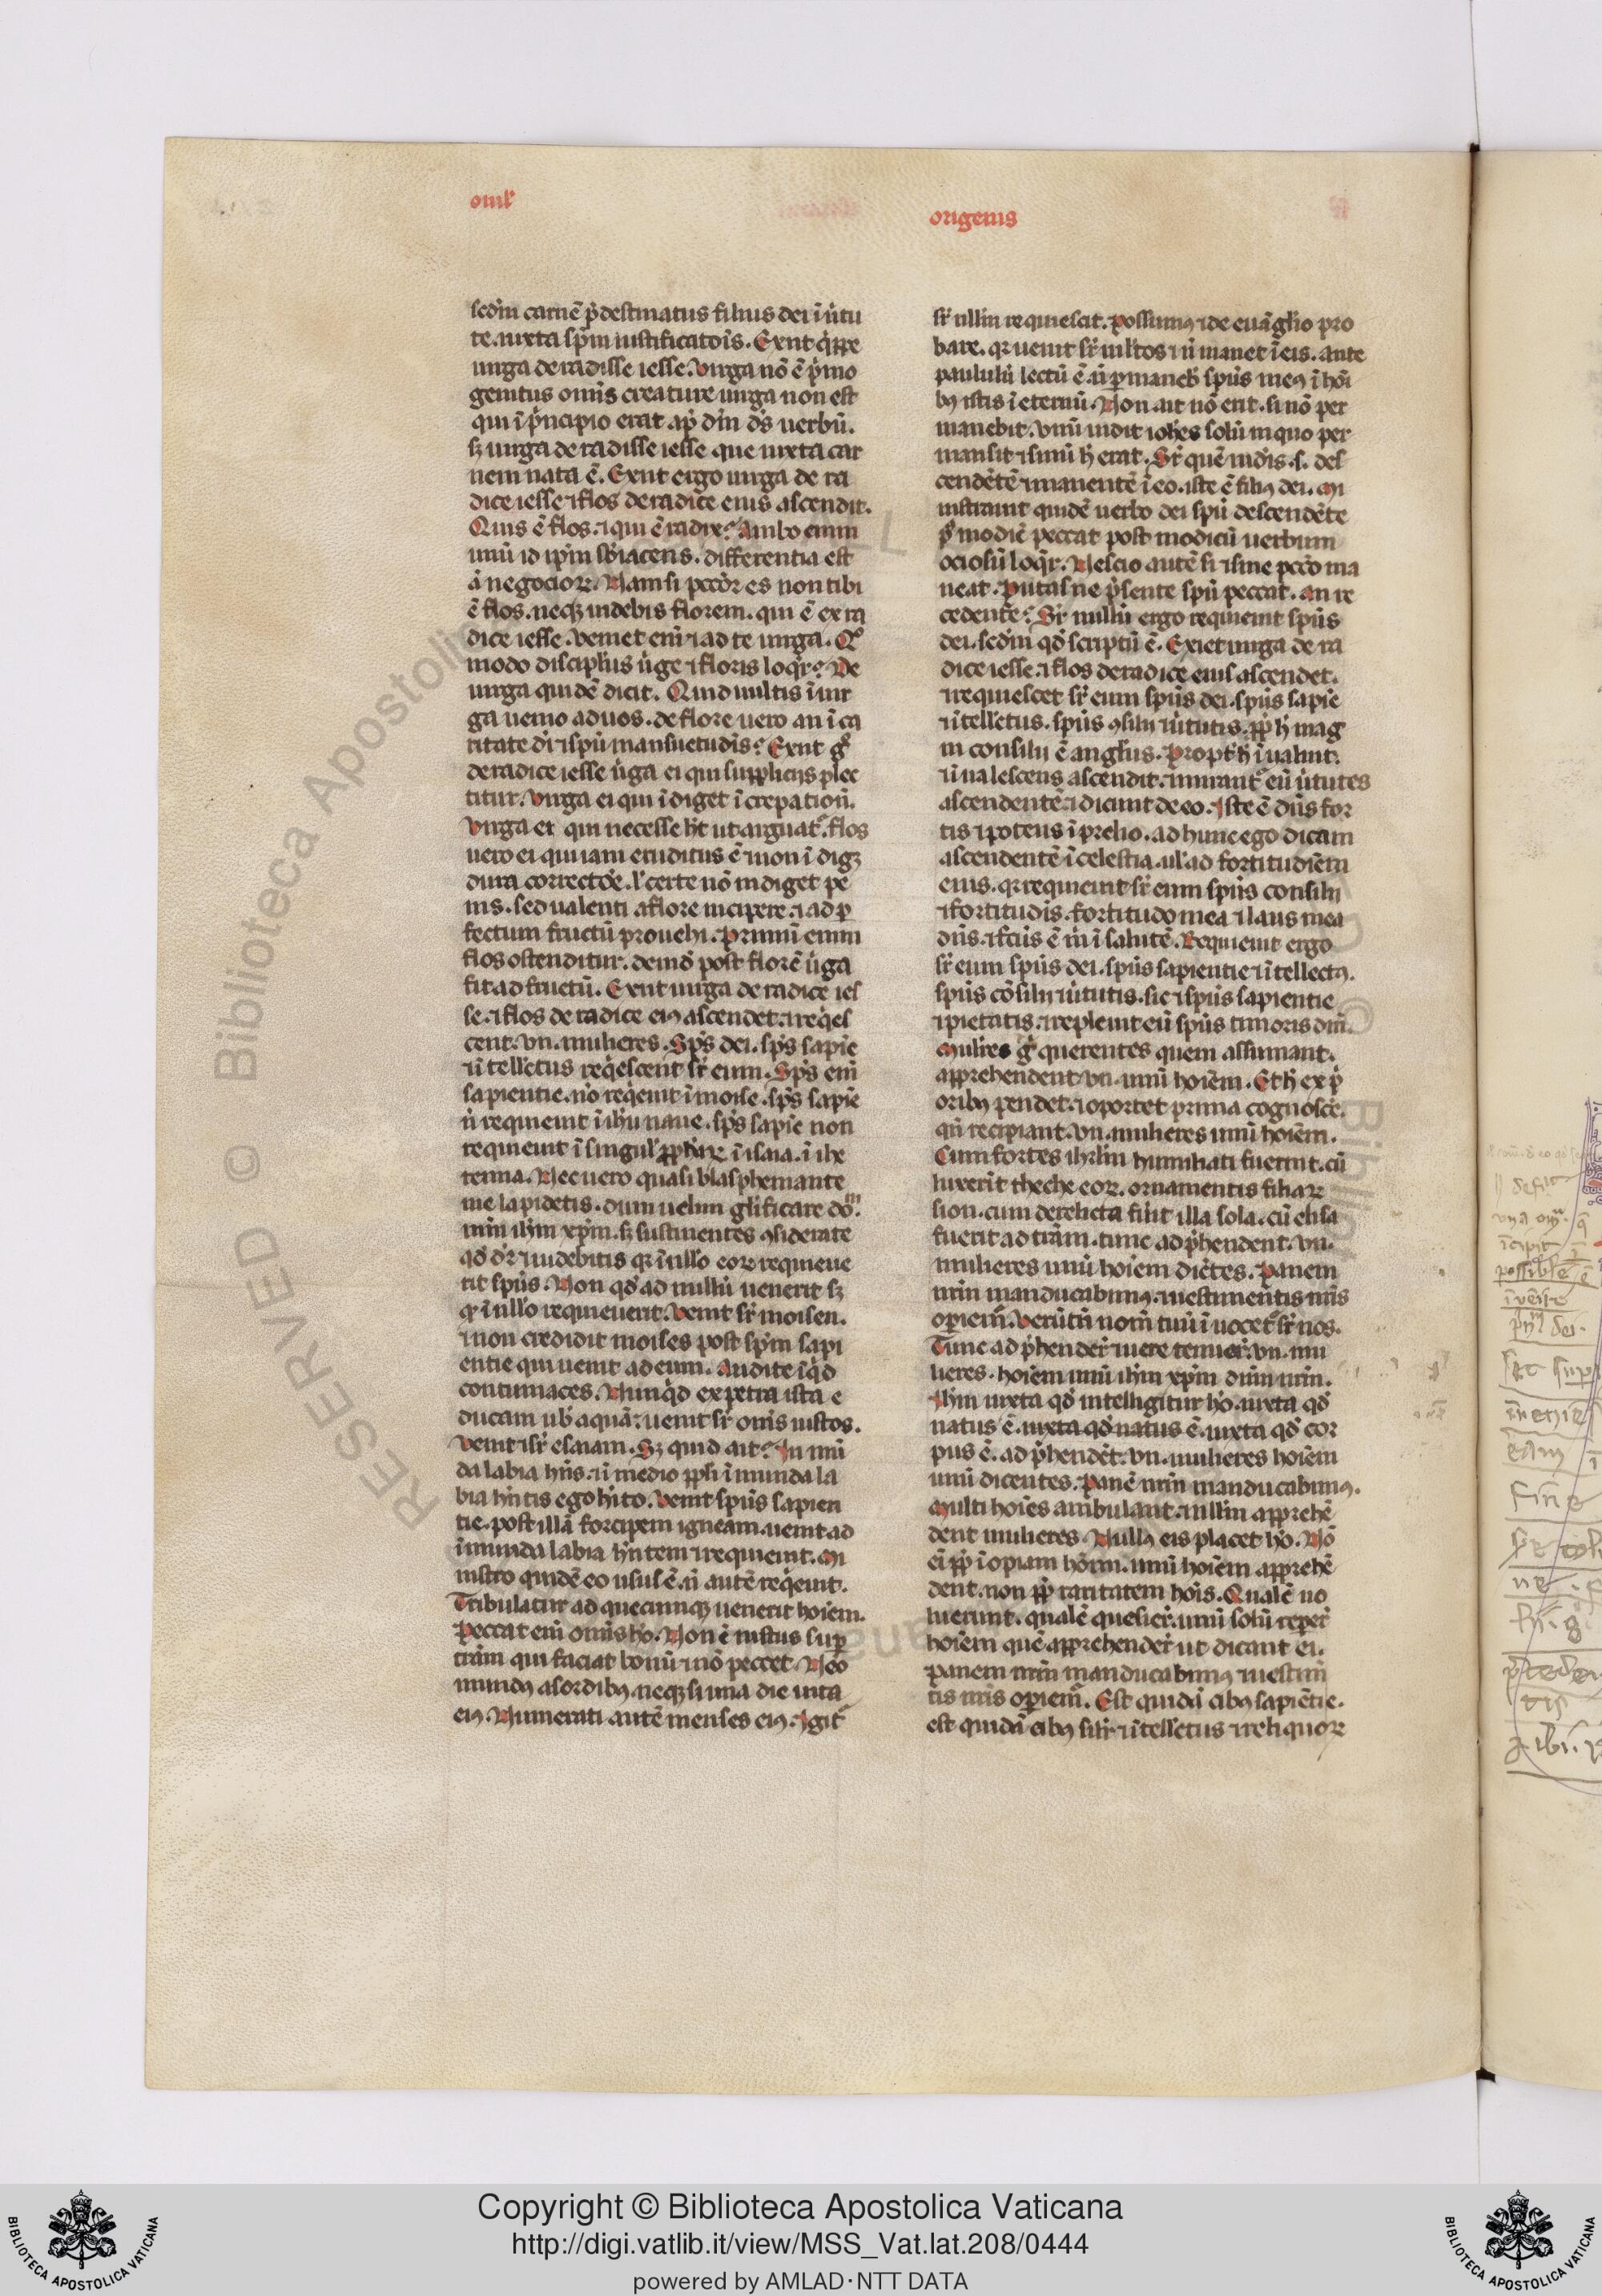 omł
origenis
scd̓m carnē p̓destinatus filius dei ī u̓tu
te. iuxta spm̄ iustificatōis. Exiit q̓ppe
uirga de radisse iesse. Virga nō ē p̓mo
genitus omīs creature uirga non est
qui ī p̓ncipio erat ap̓ dm̄ ds̓ uerbū.
sꝫ uirga de radisse iesse que iuxta car
nem nata ē. Exiit ergo uirga de ra
dice iesse ⁊ flos de radice eius ascendit.
Quis ē flos. ⁊ qui ē radix? Ambo enim
unū id ip̄m sb̓iacens. differentia est
ā negocioꝝ. Nam si pecc̓or es non tibi
ē flos. neqꝫ uidebis florem. qui ē ex ra
dice iesse. Veniet eni̓ ⁊ ad te uirga. Qͦ
modo discipl̓us u̓ge ⁊ floris loq̓r? De
uirga quidē dicit. Quid uultis ī uir
ga uenio ad uos. de flore uero an ī ca
ritate di̓ ⁊ spū mansuetudīs? Exiit gͦ
de radice iesse u̓ga ei qui suppliciis plec
titur. Virga ei qui īdiget īcrepatiōn̄.
Virga ei qui necesse ht̄ ut arguat᷑. flos
uero ei qui iam eruditus ē ⁊ non īdigꝫ
dura correcto̓e. l̓ certe nō indiget pe
nis. sed ualenti a flore incipere. ⁊ ad ꝑ
fectum fructū prouehi. Primū enim
flos ostenditur. deind̓ post florē u̓ga
fit ad fructū. Exiit uirga de radice ies
se. ⁊ flos de radice eiꝰ ascendet. ⁊ req̓es
cent. Vn. mulieres. Sp̄s dei. sp̄s sapie
⁊ ītell̓ctus req̓escent sr̓ eum. Sp̄s eni̓
sapientie. nō req̓euit ī moise. sp̄s sapie
n̓ requieuit ī ih̓u naue. sp̄s sapie non
requieuit ī singul̓ ꝓph̓aꝝ ī isaia. ī ihe
remia. Nec uero quasi blasphemante
me lapidetis. dum uelim gl̓ificare dōm̄
nr̄m ih̄m xp̄m. sꝫ sustinentes ꝯsiderate
qd̓ dr̓ ⁊ uidebitis qꝛ ī nullo eoꝝ requieue
rit spūs. Non qd̓ ad nullū uenerit sꝫ
qꝛ ī nullo requieuerit. Venit sr̓ moisen.
⁊ non credidit moises post sp̄m sapi
entie qui uenit ad eum. Audite īq̓d
contumaces. Nunq̓d ex petra ista e
ducam uob̓ aquā? uenit sr̓ om̄s iustos.
Venit ⁊ sr̓ esaiam. Sꝫ quid ait? In mū
da labia hn̄s. ⁊ ī medio ppl̓i ī munda la
bia hn̄tis ego hīto. Venit spūs sapien
tie. post illā forcipem igneam. uenit ad
īmunda labia hn̄tem ⁊ requieuit. Mi
nistro quidē eo usus ē. n̓ autē req̓euit.
Tribulatur ad quecumqꝫ uenerit hoīem.
Peccat eni̓ omīs hō. Non ē iustus suꝑ
trām qui faciat bonū ⁊ nō peccet. Neō
mundꝰ a sordibꝰ. neqꝫ si una die uita
eiꝰ. Numerati autē menses eiꝰ. Igit᷑
sr̓ ullm̄ requiescit. Possumꝰ ⁊ de euāgl̓io pro
bare. qꝛ uenit sr̓ mul̓tos ⁊ n̓ manet ī eis. ante
paululū lectū ē. n̓ ꝑmaneb̓ spūs meꝰ ī hōi
bꝰ istis ī eternū. Non ait nō erit. si nō per
manebit. Vnū uidit ioh̓es solū in quo per
mansit ⁊ sinū h̓ erat. Sr̓ quē uid̓is. s. des
cendētē ⁊ manentē ī eo. iste ē filiꝰ dei. Mi
nistrant quidē uerbo dei spū descendēte
ꝑ modic̄ peccat post modicū uerbum
ociosū loq̓r. Nescio autē si ⁊ sine pecc̓o ma
neat. Putas ne p̓sente spū peccat. an re
cedente? Sr̓ nullū ergo requieuit spūs
dei. scd̓m qd̓ scriptū ē. Exiet uirga de ra
dice iesse. ⁊ flos de radice eius ascendet.
⁊ requiescet sr̓ eum spūs dei. spūs sapie
⁊ ītell̓ctus. spūs ꝯsilii ⁊ u̓tutis. ꝓp̓ h̓ mag
ni consilii ē angl̓us. Propt̓ h̓ īualuit.
⁊ īualescens ascendit. ⁊ mirant᷑ eū u̓tutes
ascendentē. ⁊ dicunt de eo. Iste ē dn̄s for
tis ⁊ potens ī prelio. ad hunc ego dicam
ascendentē ī celestia. ul̓ ad fortitudīem
eius. qꝛ requieuit sr̓ eum spūs consilii
⁊ fortitudīs. fortitudo mea ⁊ laus mea
dn̄s. ⁊ fc̄us ē m̓ ī salutē. Requieuit ergo
sr̓ eum spūs dei. spūs sapientie ⁊ ītellectꝰ.
spūs cōsilii ⁊ u̓tutis. sic ⁊ spūs sapientie
⁊ pietatis. ⁊ repleuit eū spūs timoris dn̄i.
Mul̓ies gͦ querentes quem assumant.
apprehendent. Vn. unū hoīem. Et h̓ ex p̓
oribꝰ pendet. ⁊ oportet prima cognosce̓.
qn̄ recipiant. Vn. mulieres unū hoīem.
Cum fortes ihrl̄m humiliati fuerint. cū
luxerit theche eoꝝ. ornamentis filiaꝝ
sion. cum derelicta fu̓it illa sola. cū elisa
fuerit ad trām. tunc ad p̓hendent. Vn.
mulieres unū hoīem dic̄tes. Panem
nr̄m manducabimꝰ. ⁊ uestimentis nr̄is
oꝑiem᷑. Verūtn̄ nom̄ tuū īuocet᷑ sr̓ nos.
Tunc ad p̓hender̄t ⁊ uere tenuer̄t. Vn. mu
lieres. hoīem unū ih̄m xp̄m dn̄m nr̄m.
Ih̄m iuxta qd̓ intelligitur hō. iuxta qd̓
natus ē. iuxta qd̓ natus ē. iuxta qd̓ cor
pus ē. ad p̓hendēt. Vn. mulieres hoīem
unū dicentes. Panē nr̄m manducabimꝰ.
Multi hoīes ambulant. ⁊ nullm̄ apprehē
dent mulieres. Nullꝰ eis placet hō. Nō
ei̓ ꝓp̓ īopiam hōim. unū hoīem apprehē
dent. non ꝓp̓ raritatem hoīs. Qualē uo
luerunt. qualē quesier̄t. unū solū reper̄t
hoīem quē apprehender̄t ut dicant ei.
Panem nr̄m manducabimꝰ ⁊ uestim̄
tis nr̄is oꝑiem᷑. Est quidā cibꝰ sapiētie.
est quidā cibꝰ silr̓ ⁊ ītell̓ctus ⁊ reliquoꝝ
Copyright © Biblioteca Apostolica Vaticana
http://digi.vatlib.it/view/MSS_Vat.lat.208/0444
powered by AMLAD·NTT DATA